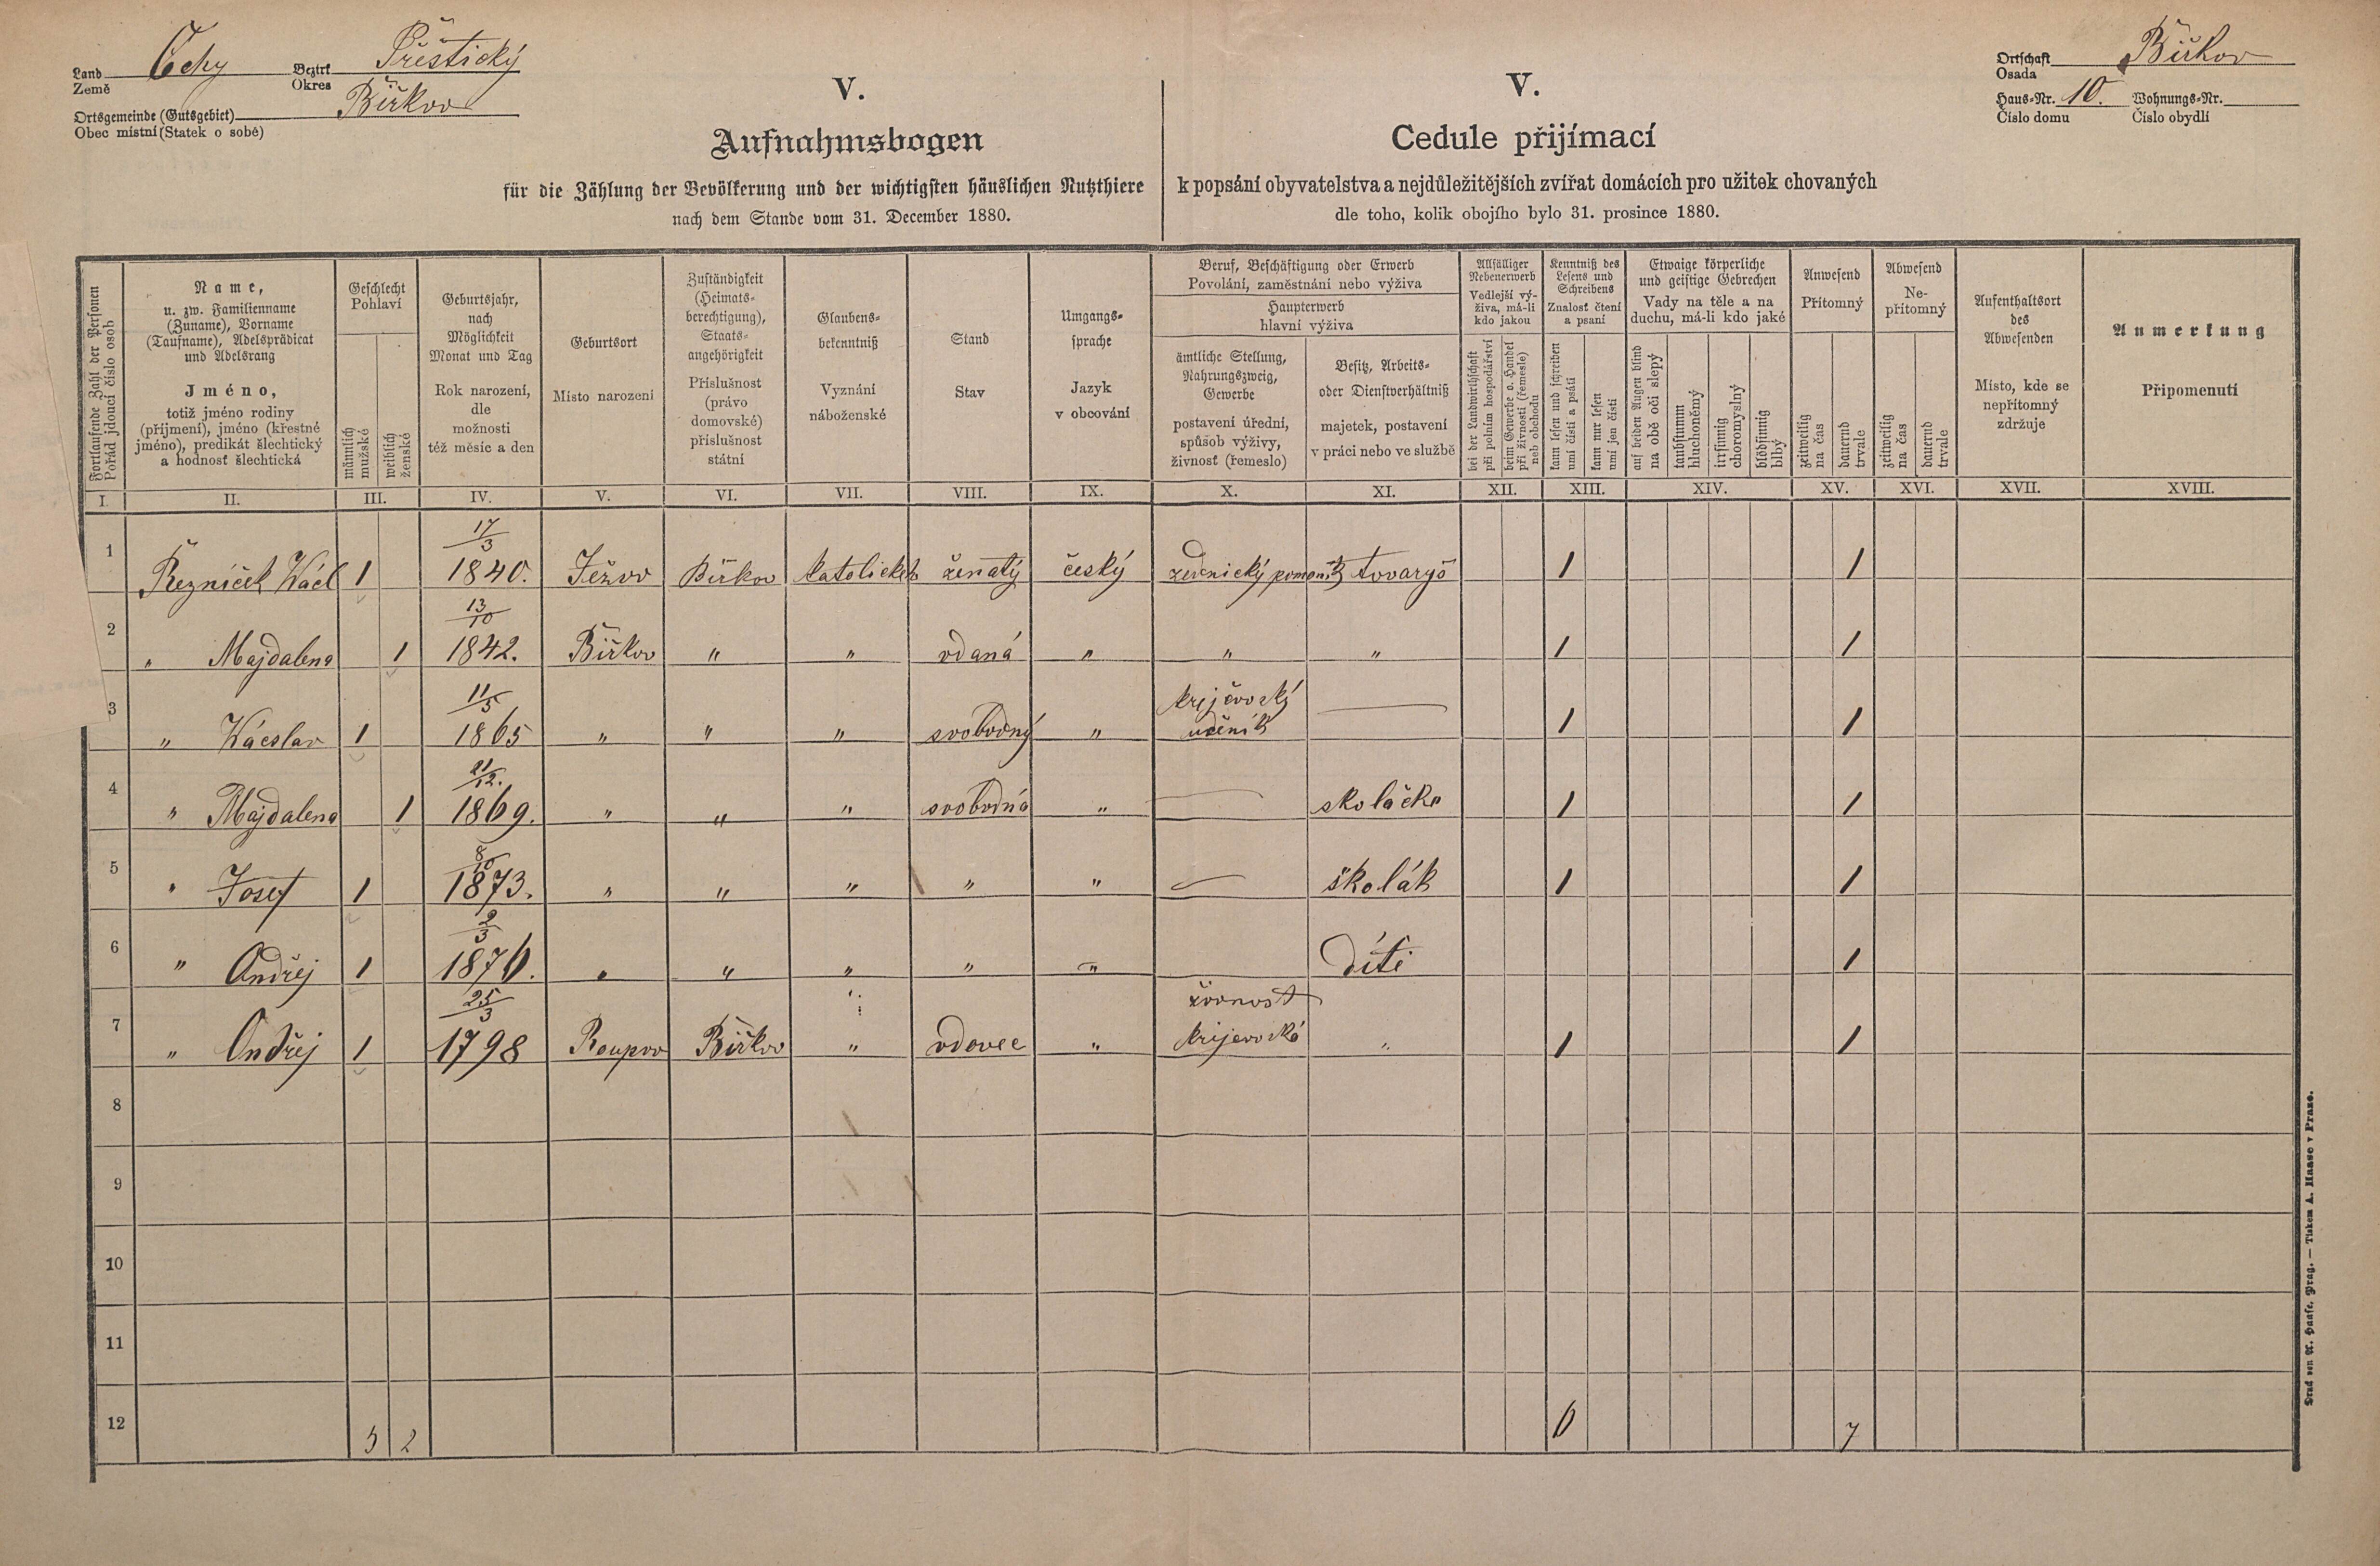 Land Čechy Bezirk Přěštický
Země Okres
Ortsgemeinde (Gutsgebiet) Bířkov
Obec místní (Statek o sobě)
V.
Aufnahmsbogen
für die Zählung der Bevölkerung und der wichtigsten häuslichen Nutzthiere
nach dem Stande vom 31. December 1880.
V.
Cedule přijímací
k popsání obyvatelstva a nejdůležitějších zvířat domácích pro užitek chovaných
dle toho, kolik obojího bylo 31. prosince 1880.
Ortschaft Bířkov
Osada
Haus-Nr. 10. Wohnungs-Nr.
Číslo domu Číslo obydlí
Fortlaufende Zahl der Personen
Pořád jdoucí číslo osob
Name,
u. zw. Familienname
(Zuname), Vorname
(Taufname), Adelsprädicat
und Adelsrang
Jméno,
totiž jméno rodiny
(příjmení), jméno (křestné
jméno), predikát šlechtický
a hodnosť šlechtická
Geschlecht
Pohlaví
männlich
mužské
weiblich
ženské
Geburtsjahr,
nach
Möglichkeit
Monat und Tag
Rok narození,
dle
možnosti
též měsíc a den
Geburtsort
Místo narození
Zuständigkeit
(Heimats-
berechtigung),
Staats-
angehörigkeit
Příslušnost
(právo
domovské)
příslušnost
státní
Glaubens-
bekenntniß
Vyznání
náboženské
Stand
Stav
Umgangs-
sprache
Jazyk
v obcování
Beruf, Beschäftigung oder Erwerb
Povolání, zaměstnání nebo výživa
Haupterwerb
hlavní výživa
ämtliche Stellung,
Nahrungszweig,
Gewerbe
postavení úřední,
způsob výživy,
živnosť (řemeslo)
Besitz, Arbeits-
oder Dienstverhältniß
majetek, postavení
v práci nebo ve službě
Allfälliger
Nebenerwerb
Vedlejší vý-
živa, má-li
kdo jakou
bei der Landwirthschaft
při polním hospodářství
beim Gewerbe o. Handel
při živnosti (řemesle)
neb obchodu
Kenntniß des
Lesens und
Schreibens
Znalosť čtení
a psaní
kann lesen und schreiben
umí čísti a psáti
kann nur lesen
umí jen čísti
Etwaige körperliche
und geistige Gebrechen
Vady na těle a na
duchu, má-li kdo jaké
auf beiden Augen blind
na obě oči slepý
taubstumm
hluchoněmý
irrsinnig
choromyslný
blödsinnig
blbý
Anwesend
Přítomný
zeitweilig
na čas
dauernd
trvale
Abwesend
Ne-
přítomný
zeitweilig
na čas
dauernd
trvale
Aufenthaltsort
des
Abwesenden
Místo, kde se
nepřítomný
zdržuje
Anmerkung
Připomenutí
I. II. III. IV. V. VI. VII. VIII. IX. X. XI. XII. XIII. XIV. XV. XVI. XVII. XVIII.
17/3
1 Řezníček Václ 1 1840. Ježov Bířkov katolické ženatý český zednický pomoník tovaryš 1 1
13/10
2 " Majdalena 1 1842. Bířkov " " vdaná " " " 1 1
11/5 krejčovský
3 " Václav 1 1865 " " " svobodný " učeník 1 1
21/12.
4 " Majdalena 1 1869. " " " svobodná " školačka 1 1
8/10
5 " Josef 1 1873. " " " " " školák 1 1
2/3
6 " Ondřej 1 1876. " " " " " díte 1
25/3 živnost
7 " Ondřej 1 1798 Roupov Bířkov " vdovec " krijcovská " 1 1
8
9
10
11
12 5 2 6 7
Druck von A. Haase, Prag. — Tiskem A. Haase v Praze.